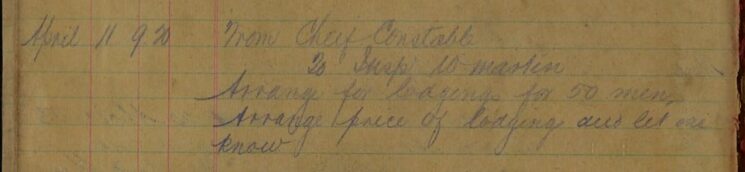 April 11 9.20 From Chief Constable
To Insp. W. Martin
Arrange for lodging for 50 men,
Arrange price of lodging and let me
know